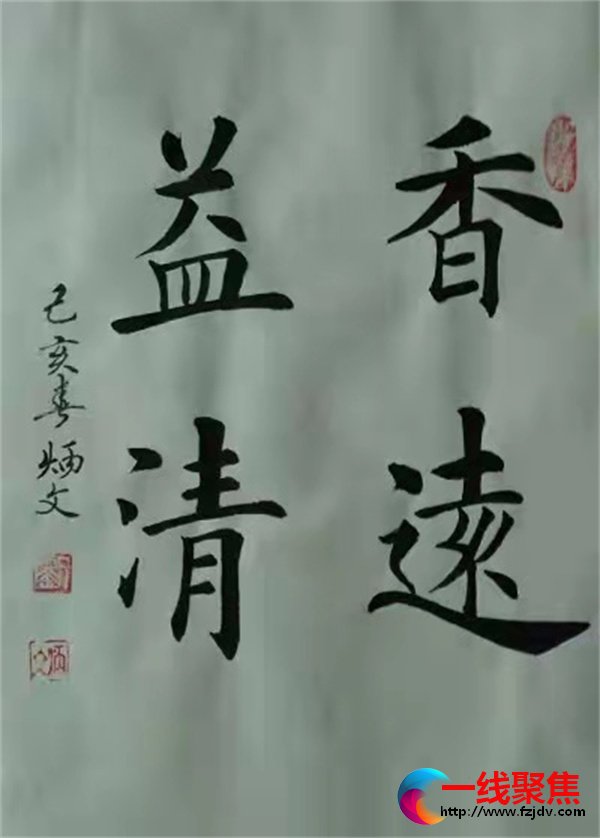 香遠
益清
己亥春炳文
一线聚焦
http://www.fzjdv.com